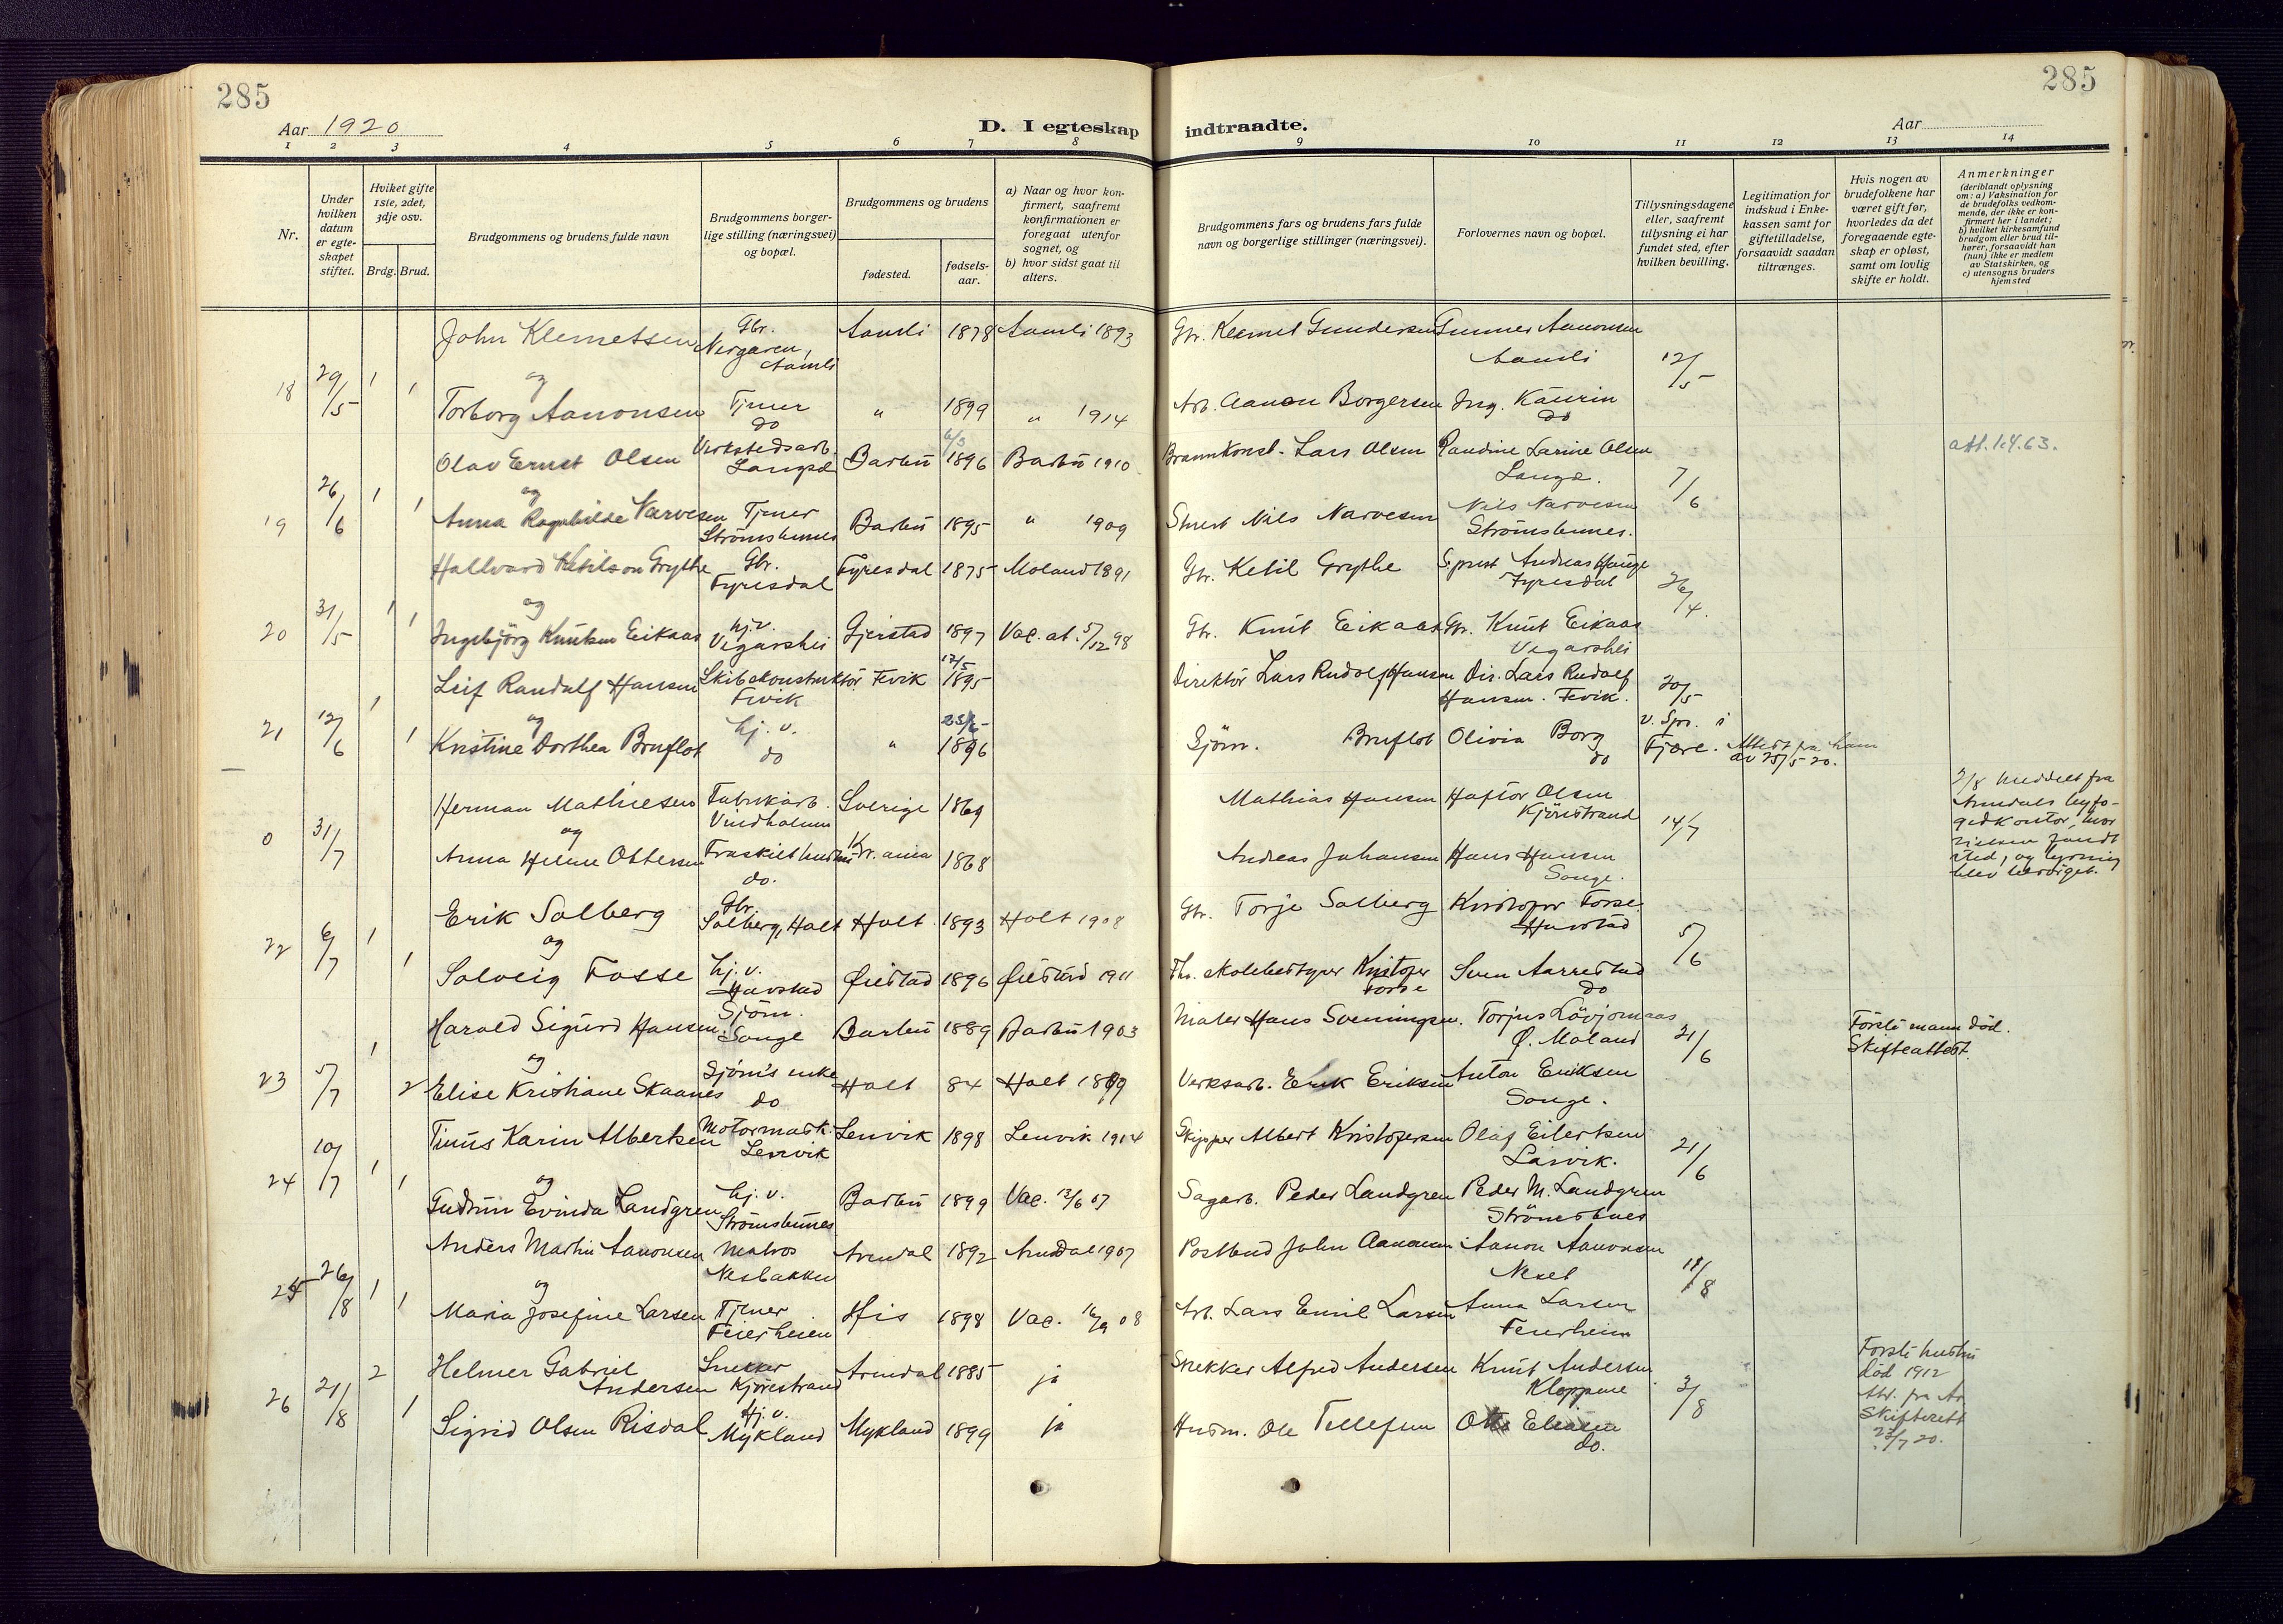 285
285
Aar 1920
D. I egteskap
indtraadte.
Aar
1 2 3 4 5 6 7 8 9 10 11 12 13 14
Nr.
Under hvilken datum er egte-skapet stiftet.
Hviket gifte 1ste, 2det, 3dje osv.
Brdg. Brud.
Brudgommens og brudens fulde navn
Brudgommens borger-lige stilling (næringsvei) og bopæl.
Brudgommens og brudens
fødested.
fødsels-aar.
a) Naar og hvor kon-firmert, saafremt konfirmationen er foregaat utenfor sognet, og
b) hvor sidst gaat til alters.
Brudgommens fars og brudens fars fulde navn og borgerlige stillinger (næringsvei).
Forlovernes navn og bopæl.
Tillysningsdagene eller, saafremt tillysning ei har fundet sted, efter hvilken bevilling.
Legitimation for indskud i Enke-kassen samt for giftetilladelse, forsaavidt saadan tiltrænges.
Hvis nogen av brudefolkene har været gift før, hvorledes da det foregaaende egte-skap er opløst, samt om lovlig skifte er holdt.
Anmerkninger
(deriblandt oplysning om: a) Vaksination for de brudefolks vedkom-mende, der ikke er kon-firmert her i landet; b) hvilket kirkesamfund brudgom eller brud til-hører, forsaavidt han (hun) ikke er medlem av Statskirken, og c) utensogns bruders hjemsted
John Klemetsen Gbr. Aamli 1878 Aamli 1893 Gbr. Klemet Gundersen Gunner Aanonsen
Aamli Aamli 12/5
18 29/5 1 1 og
Torborg Aanonsen Tjener " 1899 " 1914 Arb. Aanon Borgersen Ing. Kaurin
do do
Olav Ernst Olsen Verkstedsarb. Barbu 6/3 1896 Barbu 1910 Lars Olsen Randine Larine Olsen att. 1.4.63.
Langsæ Langsæ. 7/6
19 26/6 1 1 og
Anna Ragnhilde Narvesen Tjener Barbu 1895 " 1909 Nils Narvesen Nils Narvesen
Strømsbunes Strømsbunes.
Hallvard Ketilson Grythe Gbr. Fyresdal 1875 Moland 1891 Gbr. Ketil Grythe S.prest Andreas Hauge
Fyresdal Fyresdal 26/4.
20 31/5 1 1 og
Ingebjörg Knutsen Eikaas hj.v. Gjerstad 1897 Vac. at. 5/12 98 Gbr. Knut Eikaas Gbr. Knut Eikaas
Vegarshei Vegarshei
Leif Randulf Hansen Skibskonstruktör Fevik 12/5 1895 Direktör Lars Rudolf Hansen Dir. Lars Rudolf
Fevik Hansen. Fevik. 20/5
21 12/6 1 1 og v. Spr. i
Kristine Dorthea Bruflot hj. v. " 1896 Sjöm. Bruflot Olivia Borg Fjære. Attest fra ham
do do av 25/5 20.
Herman Mathiesen Fabrikarb. Sverige 1869 Mathias Hansen Haftor Olsen
Vindholmen Kjörestrand 14/7
0 31/7 og
Anna Helene Ottersen Fraskilt hustru Kr.ania 1868 Andreas Johansen Hans Hansen
do. Songe.
2/8 meddelt fra
Arendals byfo-
gedkontor, hvor
vielsen fandt
sted, og lysning
blev besörget.
Erik Solberg Gbr. Holt 1893 Holt 1908 Gbr. Torje Solberg Kristofer Fosse
Solberg, Holt Havstad 5/6
22 6/7 1 1 og
Solveig Fosse hj.v. Øiestad 1896 Øiestad 1911 Fh. skolebestyrer Kristofer Sven Aarrestad
Havstad Fosse do
Harald Sigurd Hansen Sjöm. Barbu 1889 Barbu 1903 Maler Hans Sveningsen. Torjus Lövjomaas Förste mann död.
Songe Ø. Moland 21/6 Skifteattest.
23 5/7 1 2 og
Elise Kristiane Skaanes Sjöm's enke Holt 84 Holt 1899 Verksarb. Erik Eriksen Anton Eriksen
do Songe.
Tinus Karin Albertsen Motormask. Lenvik 1898 Lenvik 1914 Skipper Albert Kristofersen Olaf Eilertsen
Lenvik Larvik. 21/6
24 10/7 1 1 og
Gudrun Evinda Landgren hj. v. Barbu 1899 Vac. 12/6 07 Sagarb. Peder Landgren Peder M. Landgren
Strømsbunes Strömsbunes
Anders Martin Aanonsen Matros Arendal 1892 Arendal 1907 Postbud John Aanonsen Aanon Aanonsen
Nesbakken Neset 18/8
25 26/8 1 1 og
Maria Josefine Larsen Tjener His 1898 Vac. 16/9 08 Arb. Lars Emil Larsen Anna Larsen
Feierheien Feierheien
Helmer Gabriel Snekker Arendal 1885 ja Snekker Alfred Andersen Knut Andersen
Andersen Kjörestrand Kloppene 2/8
26 21/8 2 1
Sigrid Olsen Risdal Hj. v. Mykland 1899 ja Husm. Ole Tellefsen Otto
Mykland do.
Förste hustru
död 1912
Att. fra Ar.
Skifterett
23/7 20.